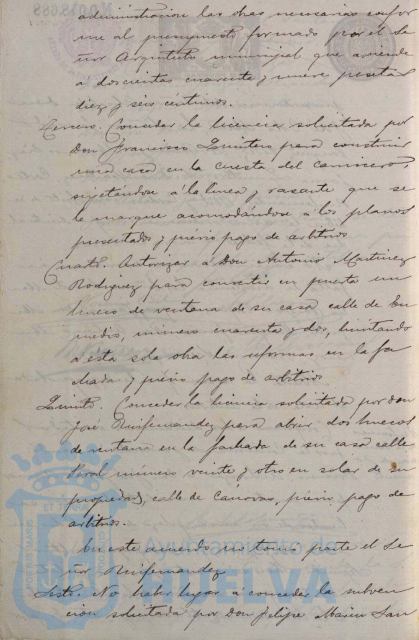 administracion las obras necesarias confor
me al presupuesto formado por el Se
ñor Arquitecto municipal que asciende
á doscientas cuarenta y nueve pesetas
diez y seis céntimos.
Tercero. Conceder la licencia solicitada por
Don Francisco Quintero para construir
una casa en la cuesta del Carnicero,
sujetándose á la linea y rasante que se
le marque acomodándose á los planos
presentados y prévio pago de arbitrios
Cuarto. Autorizar á Don Antonio Martinez
Rodriguez para convertir en puerta un
hueco de ventana de su casa calle de En
medio, número cuarenta y dos, limitando
á ésta sola obra las reformas en la fa
chada y prévio pago de arbitrios
Quinto. Conceder la licencia solicitada por don
José Ruifernandez para abrir dos huecos
de ventana en la fachada de su casa calle
número veinte y otro en solar de su
propiedad, calle de Canovas, prévio pago de
arbitrios.
En este acuerdo no tomó parte el Se
ñor Ruifernandez
Sesto. No haber lugar á conceder la subven
cion solicitada por Don Felipe Marin San
Ayuntamiento de
HUELVA